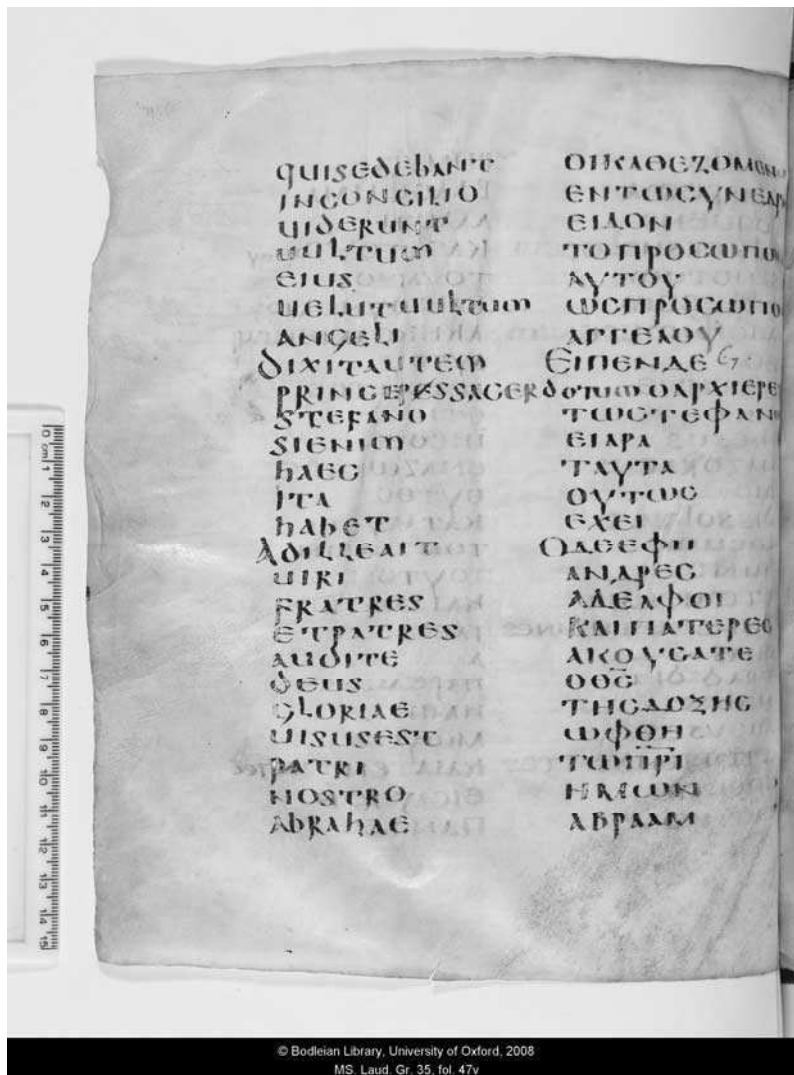 QUISEDEBANT
INCONCILIO
UIDERUNT
UULTUM
EIUS
UELUTUULTUM
ANGELI
DIXITAUTEM
PRINCEPESSACERDOTUM
STEFANO
SIENIM
HAEC
ITA
HABET
ADILLEAIT
UIRI
FRATRES
ETPATRES
AUDITE
DEUS
GLORIAE
UISUSEST
PATRI
NOSTRO
ABRAHAE
ΟΙΚΑΘΕΖΟΜΕΝ
ΕΝΤΩΣΥΝΕΔΡ
ΕΙΔΟΝ
ΤΟΠΡΟΣΩΠΟ
ΑΥΤΟΥ
ΩΣΠΡΟΣΩΠΟ
ΑΓΓΕΛΟΥ
ΕΙΠΕΝΔΕ
ΟΑΡΧΙΕΡΕ
ΤΩΣΤΕΦΑΝ
ΕΙΑΡΑ
ΤΑΥΤΑ
ΟΥΤΩΣ
ΕΧΕΙ
ΟΔΕΕΦΗ
ΑΝΔΡΕΣ
ΑΔΕΛΦΟΙ
ΚΑΙΠΑΤΕΡΕΣ
ΑΚΟΥΣΑΤΕ
ΟΘ̅Σ̅
ΤΗΣΔΟΞΗΣ
ΩΦΘΗ
ΤΩΠ̅Ρ̅Ι̅
ΗΜΩΝ
ΑΒΡΑΑΜ
0 cm 1 2 3 4 5 6 7 8 9 10 11 12 13 14 15
© Bodleian Library, University of Oxford, 2008
MS. Laud. Gr. 35, fol. 47v